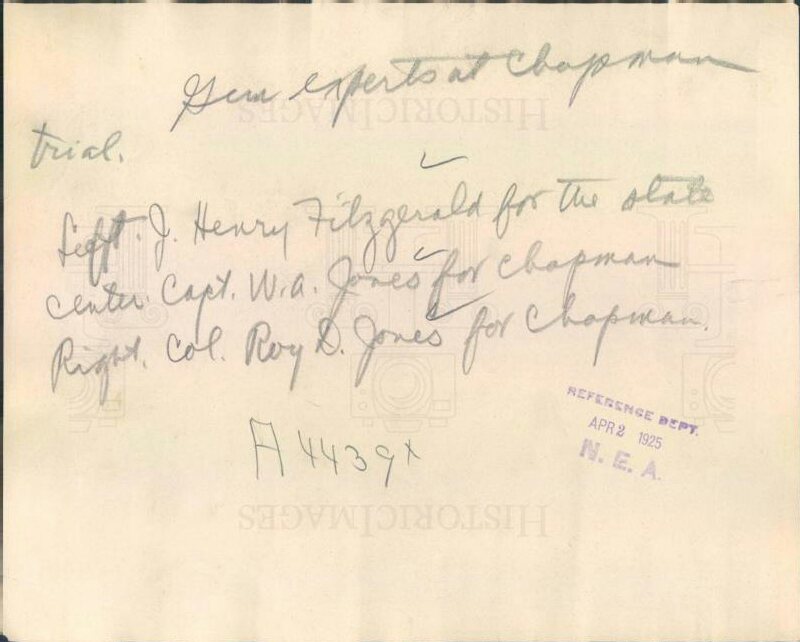 Gun experts at Chapman
HISTORICIMAGES
trial.
Left. J. Henry Fitzgerald for the state
center. Capt. W.A. Jones for Chapman
Right. Col. Roy D. Jones for Chapman.
REFERENCE DEPT.
APR 2 1925
N. E. A.
A4439x
HISTORICIMAGES